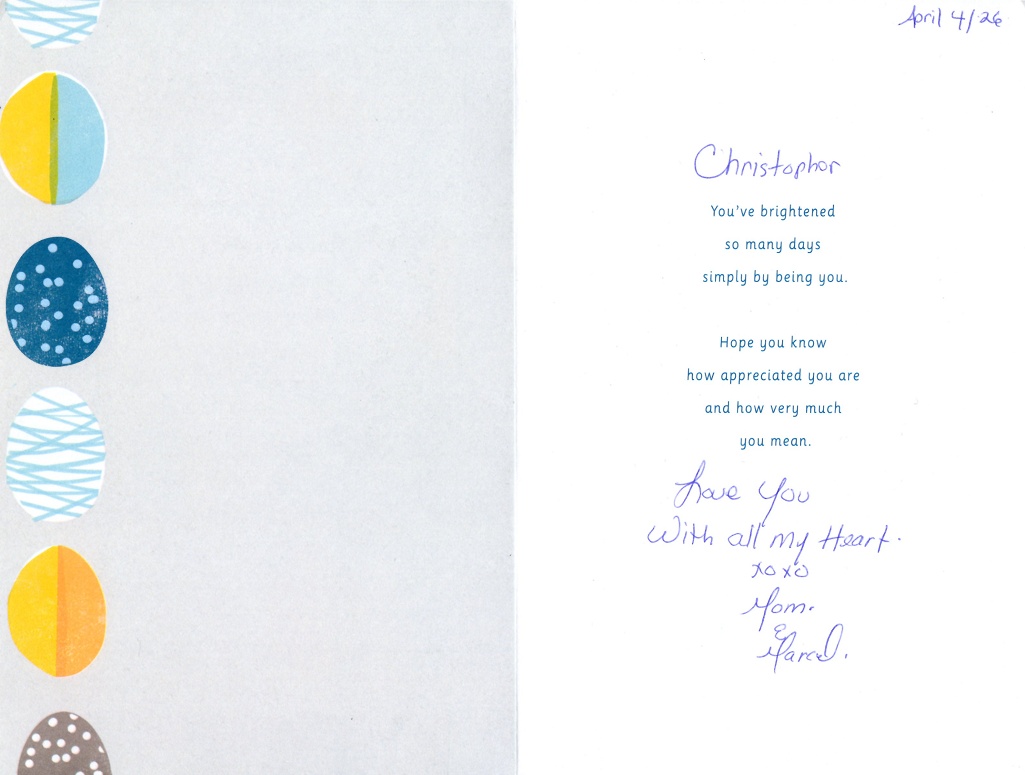 April 4/26
Christopher
You've brightened
so many days
simply by being you.
Hope you know
how appreciated you are
and how very much
you mean.
Love You
With all my Heart.
xoxo
Mom.
&
Marcel.